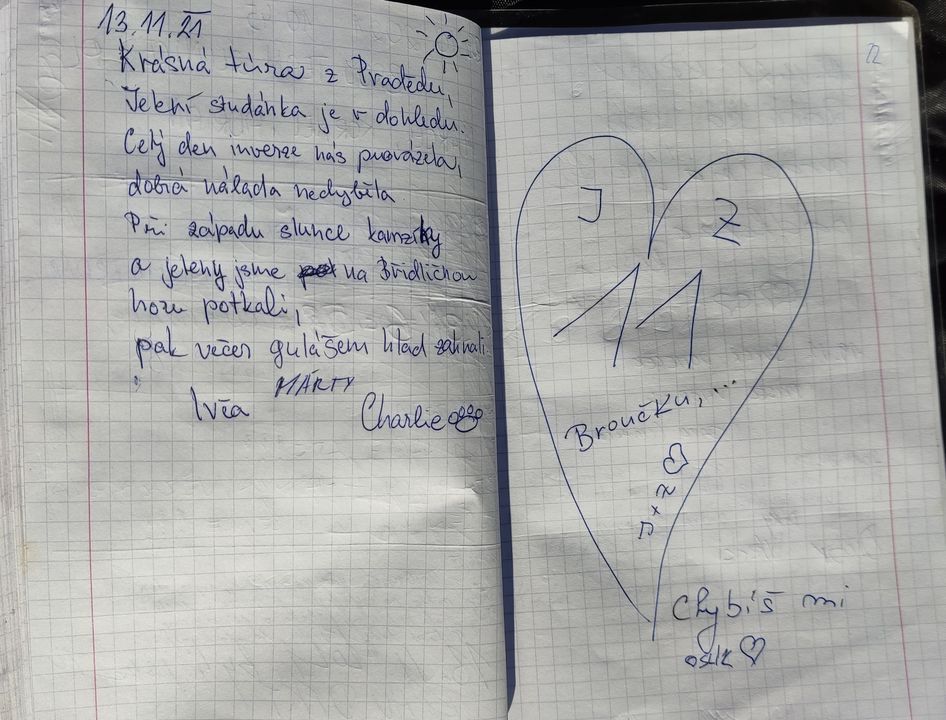 13.11.21
Krásná túra z Pradědu,
Jelení studánka je v dohledu.
Celý den inverze nás provázela,
dobrá nálada nechyběla
Při západu slunce kamzíky
a jeleny jsme na Břidličnou
horu potkali,
pak večer gulášem hlad zahnali.
MÁRTY
Ivča Charlie
J Z
11
Broučku,...
Chybíš mi